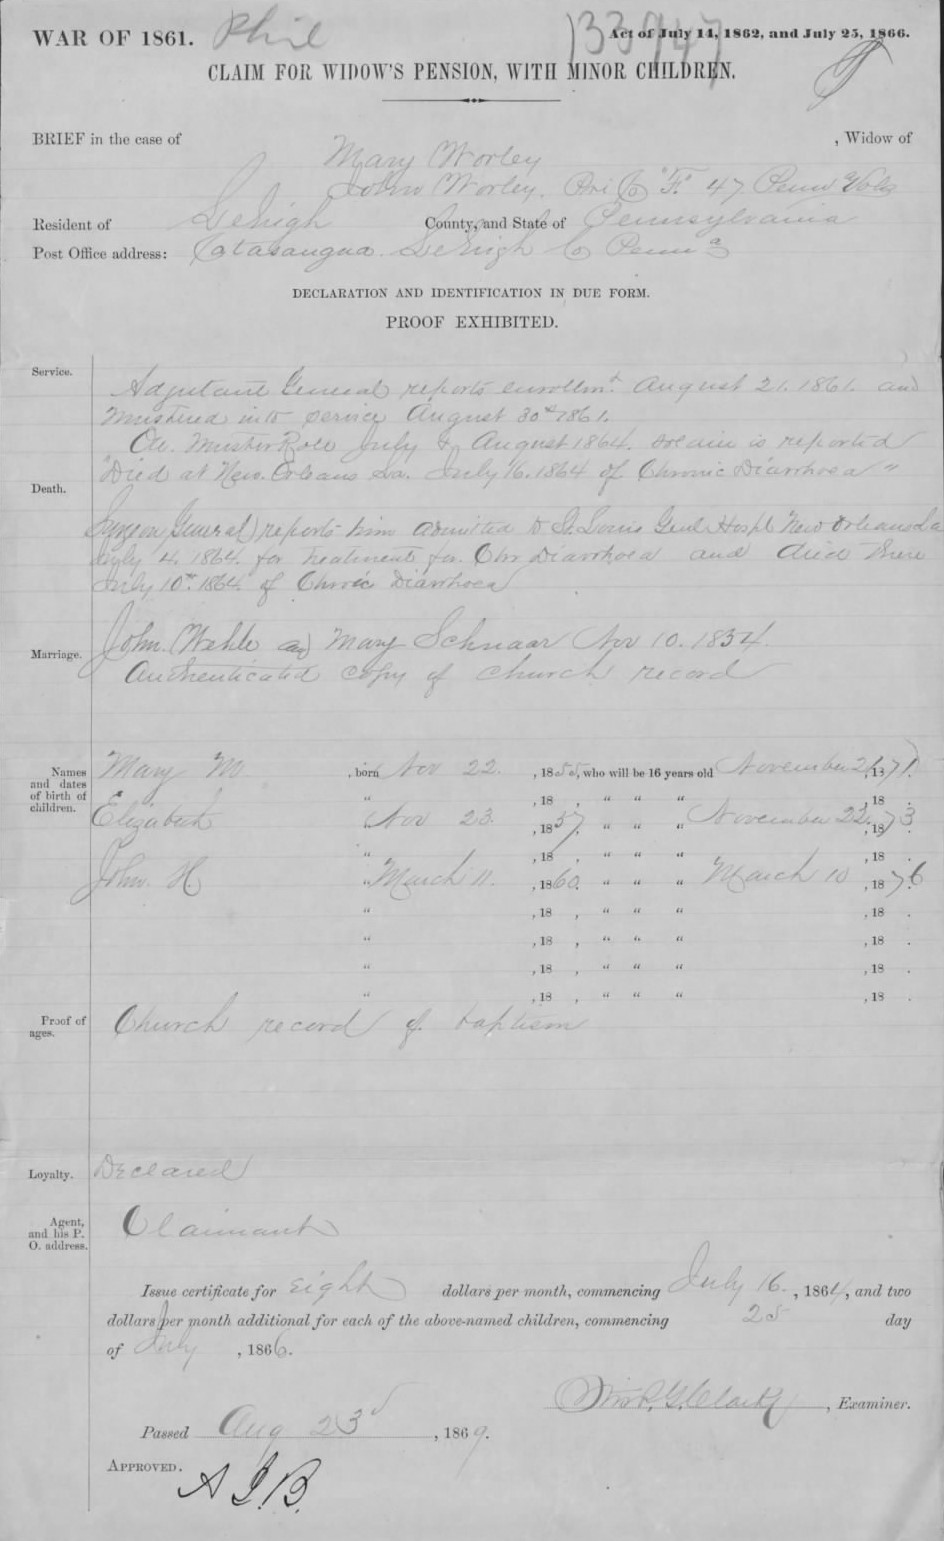 WAR OF 1861. Phil 133947 Act of July 14, 1862, and July 25, 1866.
CLAIM FOR WIDOW'S PENSION, WITH MINOR CHILDREN.
BRIEF in the case of Mary Worley, Widow of
John Worley. Pri Co "F" 47 Penn Vols
Resident of Lehigh County, and State of Pennsylvania
Post Office address: Catasauqua Lehigh Co Penna
DECLARATION AND IDENTIFICATION IN DUE FORM.
PROOF EXHIBITED.
Service.
Adjutant General reports enrollmt August 21. 1861. and
mustered into service August 30th 1861.
On Muster Roll July & August 1864. soldier is reported
"Died at New. Orleans La. July 16. 1864 of Chronic Diarrhoea"
Death.
Surgeon General reports him admitted to St. Louis Genl Hospl New Orleans La
July 4. 1864. for treatment for Chr Diarrhoea and died there
July 10th 1864 of Chronic Diarrhoea
Marriage.
John. Wehle and Mary Schnaar Nov 10. 1854.
Authenticated copy of church record
Names and dates of birth of children.
Mary M , born Nov 22. , 1855, who will be 16 years old November 21, 1871.
" , 18 , " " " , 18 .
Elizabeth " Nov 23. , 1857, " " " November 22, 1873
" , 18 , " " " , 18 .
John. H " March 11. , 1860, " " " March 10 , 1876
" , 18 , " " " , 18 .
" , 18 , " " " , 18 .
" , 18 , " " " , 18 .
" , 18 , " " " , 18 .
Proof of ages.
Church record of baptism
Loyalty. Declared
Agent, and his P. O. address.
Claimant
Issue certificate for eight dollars per month, commencing July 16. , 1864, and two
dollars per month additional for each of the above-named children, commencing 25 day
of July , 1866.
G. Clark , Examiner.
Passed Aug 23d , 1869.
APPROVED.
A J B.